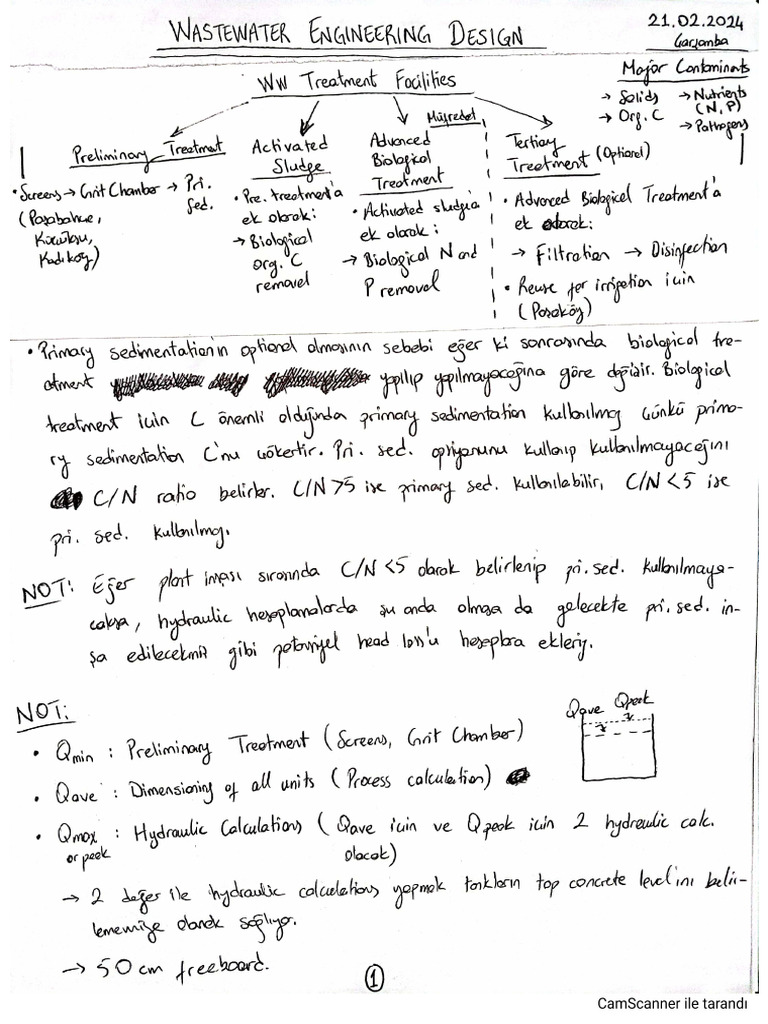 WASTEWATER ENGINEERING DESIGN
21.02.2024
Çarşamba
WW Treatment Facilities
Major Contaminants
→ Solids
→ Org. C
→ Nutrients
(N, P)
→ Pathogens
Preliminary Treatment
• Screens → Grit Chamber → Pri.
sed.
(Paşabahçe,
Küçüksu,
Kadıköy)
Activated
Sludge
• Pre. treatment'a
ek olarak:
→ Biological
Org. C
removal
Müfredat
Advanced
Biological
Treatment
• Activated sludge'a
ek olarak:
→ Biological N and
P removal
Tertiary
Treatment (Optional)
• Advanced Biological Treatment'a
ek olarak:
→ Filtration → Disinfection
• Reuse for irrigation için
(Paşaköy)
• Primary sedimentation'ın optional olmasının sebebi eğer ki sonrasında biological tre-
atment yapılıp yapılmayacağına göre değişir. Biological
treatment için C önemli olduğunda primary sedimentation kullanılmaz çünkü prima-
ry sedimentation C'nu çökertir. Pri. sed. opsiyonunu kullanıp kullanılmayacağını
C/N ratio belirler. C/N >5 ise primary sed. kullanılabilir, C/N <5 ise
pri. sed. kullanılmaz.
NOT: Eğer plant inşası sırasında C/N <5 olarak belirlenip pri. sed. kullanılmaya-
caksa, hydraulic hesaplamalarda şu anda olmasa da gelecekte pri. sed. in-
şa edilecekmiş gibi potansiyel head loss'u hesaplara ekleriz.
NOT:
Qave Qpeak
• Qmin : Preliminary Treatment (Screens, Grit Chamber)
• Qave : Dimensioning of all units (Process calculation)
• Qmax : Hydraulic Calculations ( Qave için ve Qpeak için 2 hydraulic calc.
or peak olacak)
→ 2 değer ile hydraulic calculations yapmak tankların top concrete level'ını belir-
lememize olanak sağlıyor.
→ 50 cm freeboard.
1
CamScanner ile tarandı